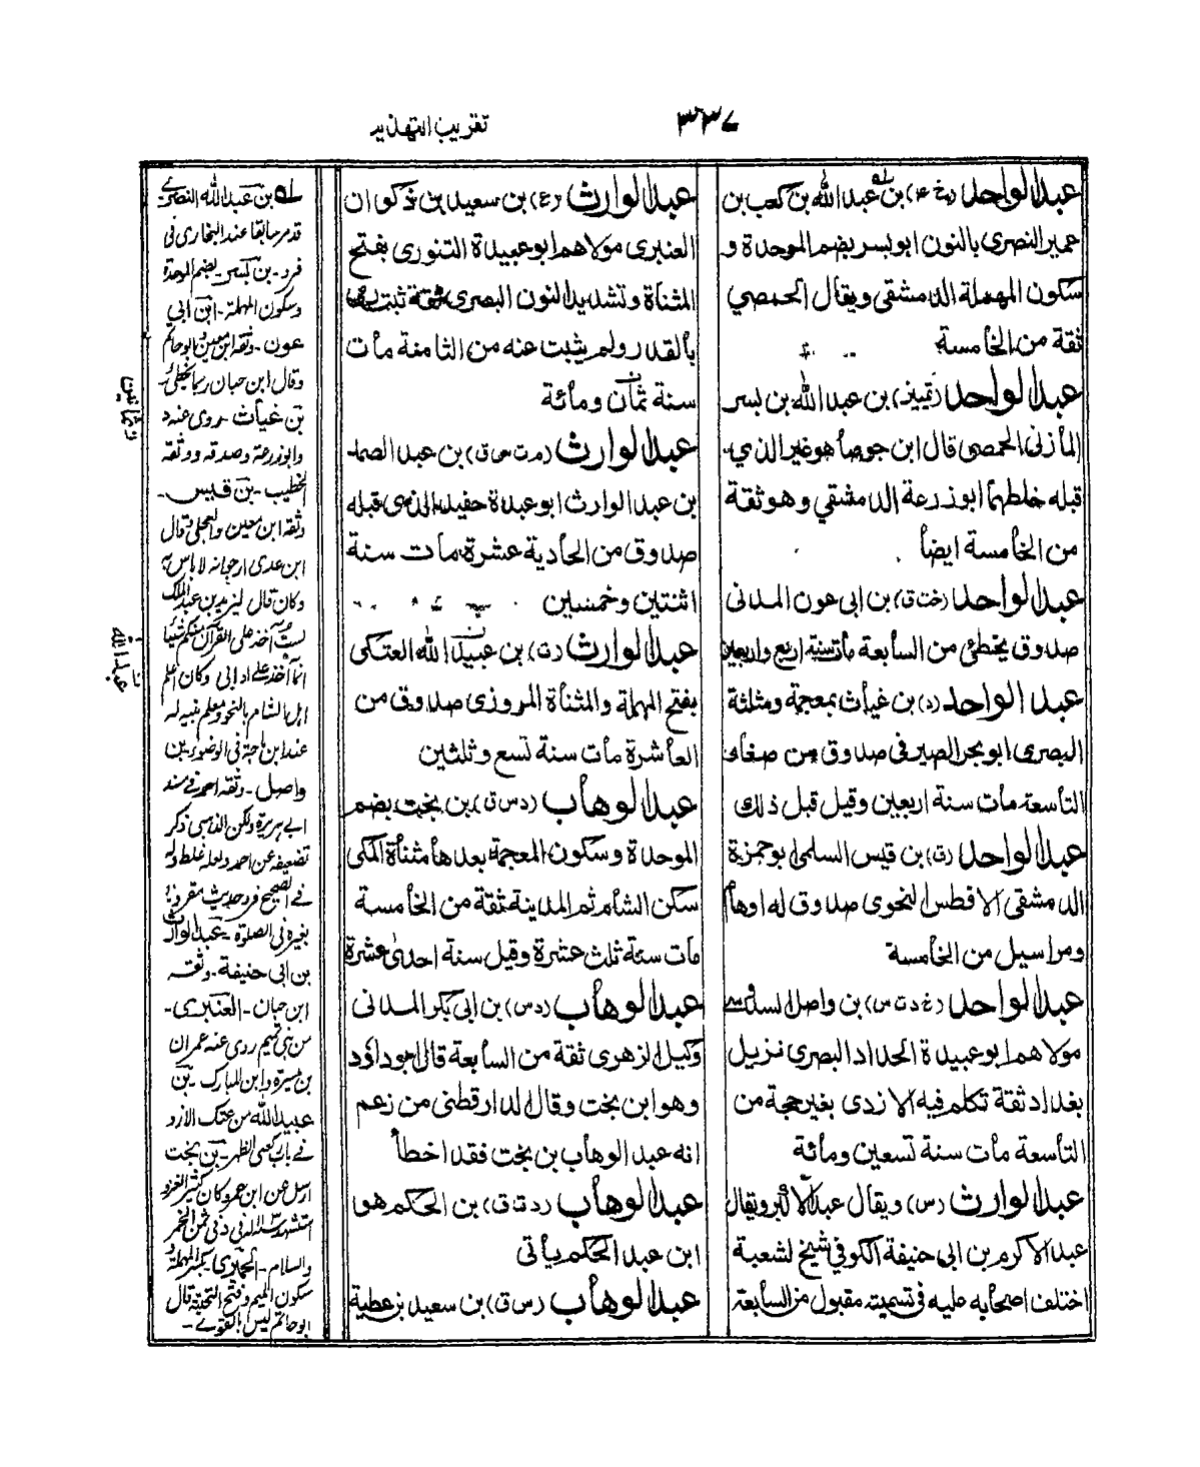 ٣٣٧
تقريب التهذيب
عبد الواحد (خ ٤) بن عبد الله بن كعب بن
عمير النصرى بالنون ابو بسر بضم الموحدة و
سكون المهملة الدمشقى ويقال الحمصي
ثقة من الخامسة
عبد الواحد (تمييز) بن عبد الله بن بسر
المازنى الحمصى قال ابن جوصا هو غير الذي
قبله خلطهما ابو زرعة الدمشقي وهو ثقة
من الخامسة ايضا
عبد الواحد (خت ق) بن ابى عون المدنى
صدوق يخطئ من السابعة مات سنة اربع واربعين
عبد الواحد (د) بن غياث بمعجمة ومثلثة
البصرى ابو بحر الصيرفى صدوق من صغار
التاسعة مات سنة اربعين وقيل قبل ذلك
عبد الواحد (ت) بن قيس السلمى ابو حمزة
الدمشقى الافطس النحوى صدوق له اوهام
ومراسيل من الخامسة
عبد الواحد (خ د ت س) بن واصل السدوسے
مولاهم ابو عبيدة الحداد البصرى نزيل
بغداد ثقة تكلم فيه الازدى بغير حجة من
التاسعة مات سنة تسعين ومائة
عبد الوارث (س) ويقال عبد الاكبر ويقال
عبد الاكرم بن ابى حنيفة الكوفي شيخ لشعبة
اختلف اصحابه عليه فى تسميته مقبول من السابعة
عبد الوارث (ع) بن سعيد بن ذكوان
العنبرى مولاهم ابو عبيدة التنورى بفتح
المثناة وتشديد النون البصرى ثقة ثبت رمى
بالقدر ولم يثبت عنه من الثامنة مات
سنة ثمان ومائة
عبد الوارث (م ت س ق) بن عبد الصمد
بن عبد الوارث ابو عبيدة حفيد الذى قبله
صدوق من الحادية عشرة مات سنة
اثنتين وخمسين
عبد الوارث (ت) بن عبيد الله العتكى
بفتح المهملة والمثناة المروزى صدوق من
العاشرة مات سنة تسع وثلثين
عبد الوهاب (د س ق) بن بخت بضم
الموحدة وسكون المعجمة بعدها مثناة المكى
سكن الشام ثم المدينة ثقة من الخامسة
مات سنة ثلث عشرة وقيل سنة احدى عشرة
عبد الوهاب (د س) بن ابى بكر المدنى
وكيل الزهرى ثقة من السابعة قال ابو داؤد
وهو ابن بخت وقال الدارقطنى من زعم
انه عبد الوهاب بن بخت فقد اخطأ
عبد الوهاب (د ت ق) بن الحكم هو
ابن عبد الحكم يأتى
عبد الوهاب (س ق) بن سعيد بن عطية
لــه بن عبد الله النصرے
قدم سابقا عند البخارى فى
فرد - بن بسر - بضم الموحدة
وسكون المهملة - ابن ابي
عون - وثقه ابن معين وابو حاتم
وقال ابن حبان ربما يخطئ
بن غياث - روى عنه د
وابو زرعة وصدقه ووثقه
الخطيب - بن قيس -
وثقه ابن معين والعجلى وقال
ابن عدى ارجو انه لا باس به
وكان قال ليزيد بن عبد الملك
لست آخذ على القرآن منكم شيئا
انما آخذ على ادابى وكان اعلم
اهل الشام بالنحو ومعلم بنيه له
عند ابن ماجة فى الوضوء - بن
واصل - وثقه احمد فى مسند
ابى هريرة ولكن الذهبى ذكر
تضعيفه عن احمد ولعله غلط وله
فے الصحيح فرد حديث مقرونا
بغيره فى الصلوة - عبد الوارث
بن ابى حنيفة - وثقه
ابن حبان - العنبرى -
من بنى تميم روى عنه عمران
بن ميسرة وابن المبارك - بن
عبيد الله من عتك الازد
فے باب كعبى الظهر - بن بخت
ارسل عن ابن عمر وكان كثير الغزو
والسلام - بكسر المهملة
سكون الميم وفتح التحتية قال
ابو حاتم ليس بالقوے -
ثمانين
عبد الله